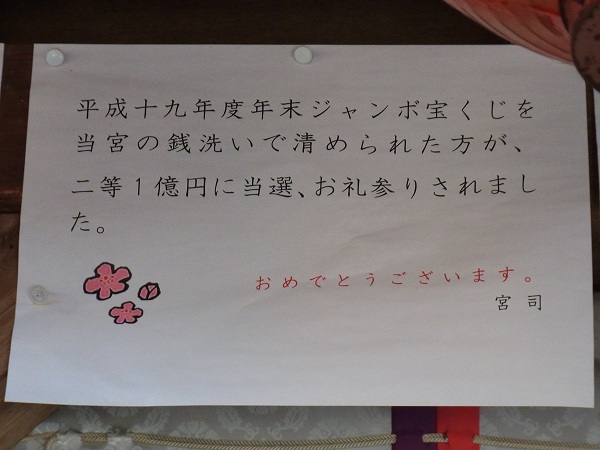 平成十九年度年末ジャンボ宝くじを
当宮の銭洗いで清められた方が、
二等1億円に当選、お礼参りされまし
た。
おめでとうございます。
宮司